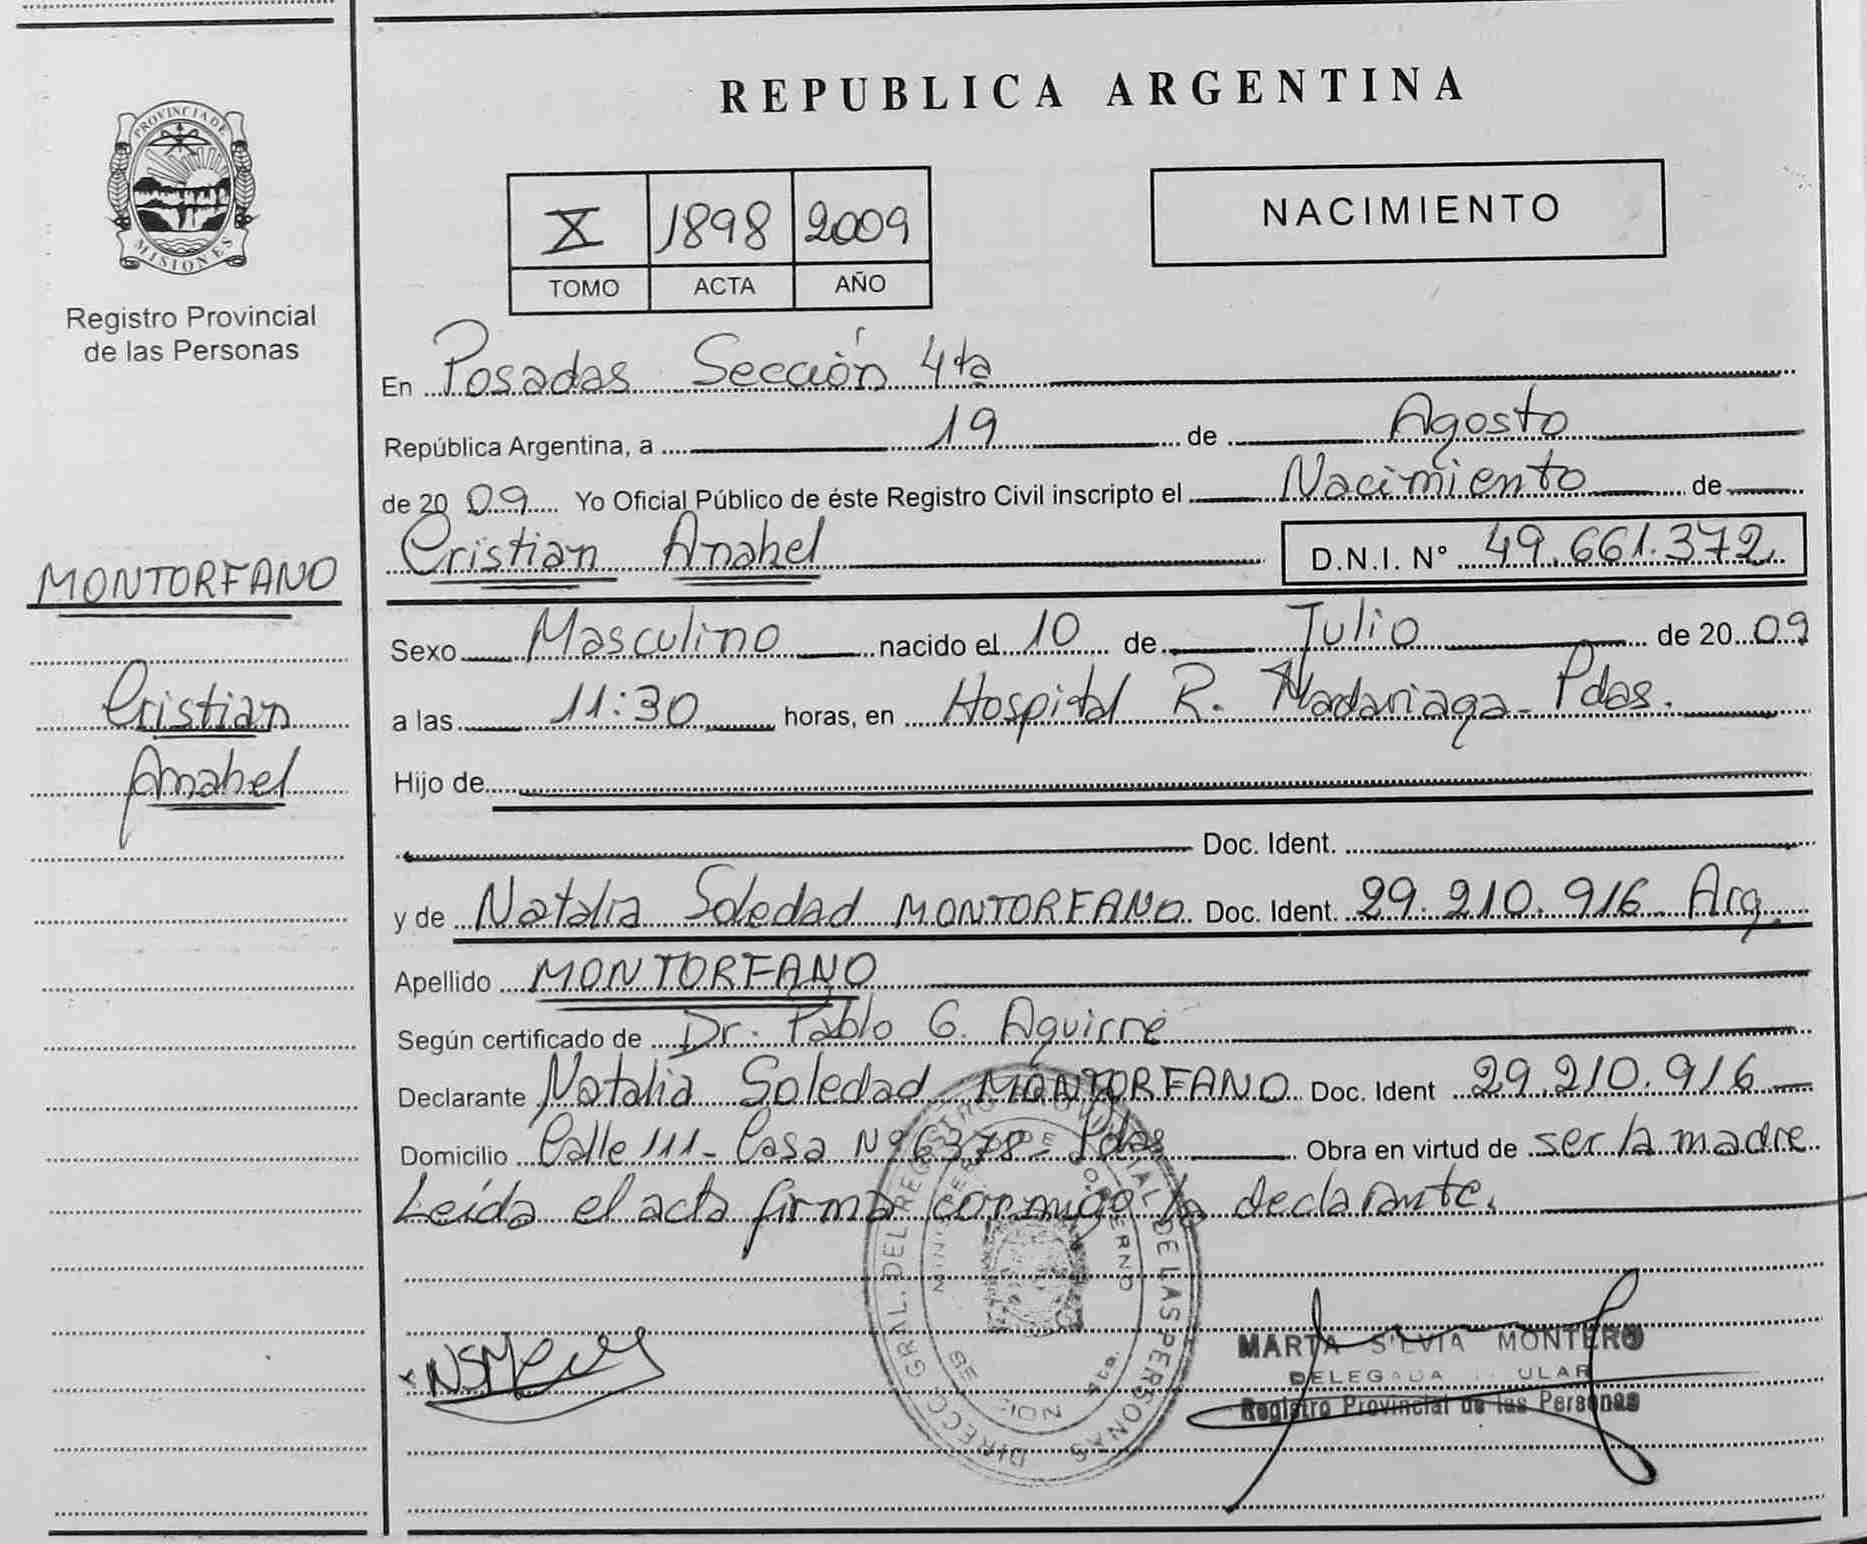 PROVINCIA DE
MISIONES
Registro Provincial
de las Personas
MONTORFANO
Cristian
Anahel
REPUBLICA ARGENTINA
X 1898 2009
TOMO ACTA AÑO
NACIMIENTO
En Posadas Sección 4ta
República Argentina, a 19 de Agosto
de 20 09 Yo Oficial Público de éste Registro Civil inscripto el Nacimiento de
Cristian Anahel D.N.I. N° 49.661.372
Sexo Masculino nacido el 10 de Julio de 20 09
a las 11:30 horas, en Hospital R. Madariaga - Pdas.
Hijo de
Doc. Ident.
y de Natalia Soledad MONTORFANO Doc. Ident. 29.210.916 Arg.
Apellido MONTORFANO
Según certificado de Dr. Pablo G. Aguirre
Declarante Natalia Soledad MONTORFANO Doc. Ident 29.210.916
Domicilio Calle 111 - Casa Nº 6378 - Pdas Obra en virtud de ser la madre
Leída el acta firma conmigo la declarante.
DIRECC. GRAL. DEL REGISTRO PROVINCIAL DE LAS PERSONAS
MINISTERIO DE GOBIERNO
MARTA SILVIA MONTERO
DELEGADA
Registro Provincial de las Personas